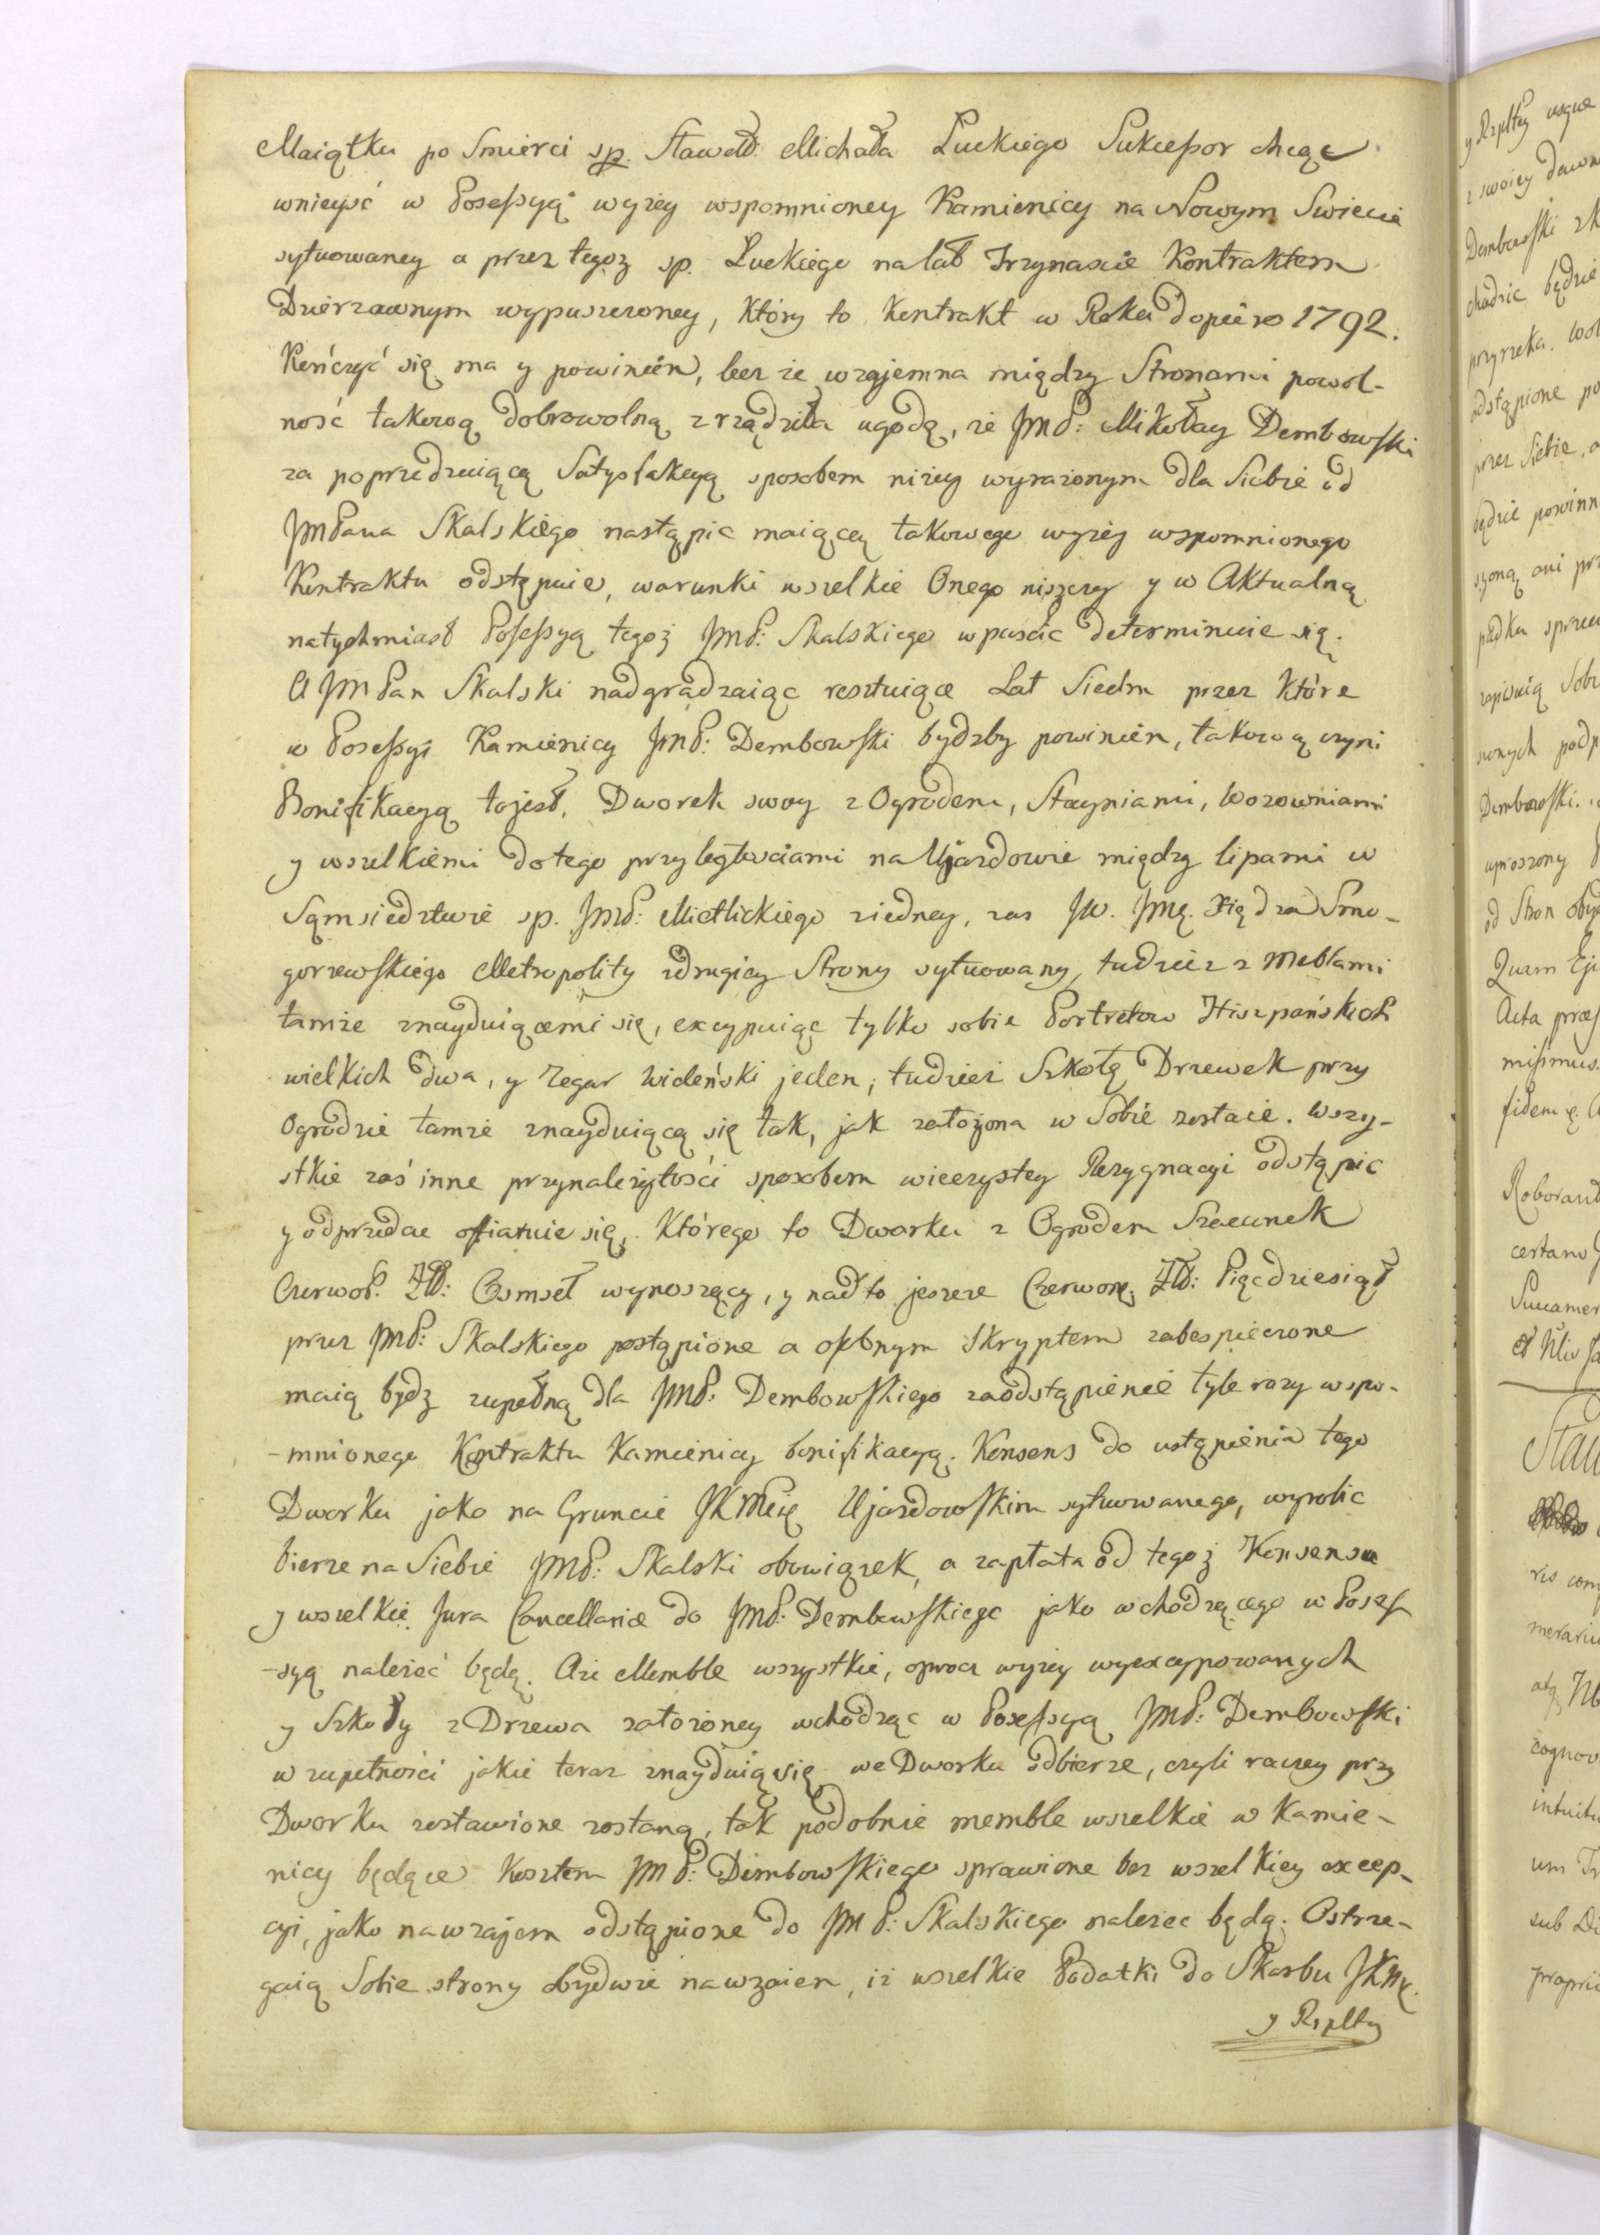 Maiątku po Smierci sp. Sławetł. Michała Łuckiego Sukceßor chcąc
wnieyść w Poseßyą wyzey wspomnioney Kamienicy na Nowym Swiecie
sytuowaney a przez tegoz sp. Łuckiego na lat Trzynascie Kontraktem
Dzierzawnym wypuszczoney, Który to Kontrakt w Roku dopiero 1792.
Kończyć się ma y powinien, lecz ze wzajemna między Stronami powol-
ność takową dobrowolną zrządziła ugodą, ze JmP: Mikołay Dembowski
za poprzedzaiącą Satysfakcyą sposobem nizey wyrazonym dla Siebie od
JmPana Skalskiego nastąpic maiącą takowego wyzey wspomnionego
Kontraktu odstępuie, warunki wszelkie Onego niszczy y w Aktualną
natychmiast Poseßyą tegoż JmP: Skalskiego wpuscic determinuie się.
A JmPan Skalski nadgradzaiąc resztuiące Lat Siedm przez Które
w Poseßyi Kamienicy JmP: Dembowski bydzby powinien, takową czyni
Bonifikacyą to jest, Dworek swoy z Ogrodem, Stayniami, Wozowniami
y wszelkiemi do tego przyległosciami na Ujazdowie między lipami w
Sąmsiedztwie sp. JmP: Mietlickiego ziedney, zas JW. Jmę. Xiędza Smo-
gorzewskiego Metropolity zdrugiey Strony sytuowany, tudziez z Meblami
tamze znayduiącemi się, excypuiąc tylko sobie Portretow Hiszpańskich
wielkich dwa, y Zegar Wideński jeden, tudziez Szkołę Drzewek przy
Ogrodzie tamze znayduiącą się tak, jak załozona w Sobie zostaie. Wszy-
stkie zaś inne przynalezytości sposobem wieczystey Rezygnacyi odstąpic
y odprzedac offiaruie się, Którego to Dworku z Ogrodem Szacunek
Czerwo: Zł: Osmset wynoszący, y nadto jeszcze Czerwon: Zł: Pięcdziesiąt
przez JmP: Skalskiego postąpione a osobnym Skryptem zabespieczone
maią bydz zupełną dla JmP: Dembowskiego zaodstąpienie tyle razy wspo-
-mnionego Kontraktu Kamienicy bonifikacyą. Konsens do ustąpienia tego
Dworku jako na Gruncie JKMcię Ujazdowskim sytuowanego, wyrobic
bierze na Siebie JmP: Skalski obowiązek, a zapłata od tegoż Konsensu
y wszelkie Jura Cancellariæ do JmP: Dembowskiego jako wchodzącego w Posses
-syą nalezeć będą. Aze Memble wszystkie, oprocz wyzey wyexcypowanych
y Szkoły z Drzewa załozoney wchodząc w Poseßyą JmP: Dembowski
w zupełności jakie teraz znayduią się we Dworku odbierze, czyli raczey przy
Dworku zostawione zostaną, tak podobnie memble wszelkie w Kamie-
nicy będące Kosztem JmP: Dembowskiego sprawione bez wszelkiey excep-
cyi, jako nawzajem odstąpione do JmP: Skalskiego nalezec będą. Ostrze-
gaią Sobie strony obydwie nawzaiem, iż wszelkie Podatki do Skarbu JKMc.
y Rzpltey